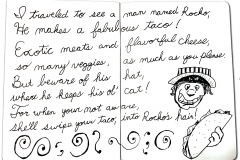 I traveled to see a man named Rocko,
He makes a fabulous taco!
Exotic meats and flavorful cheese,
so many veggies, as much as you please.
But beware of his hat,
where he keeps his ol' cat!
For when your not aware,
she'll swipe your taco, into Rocko's hair!